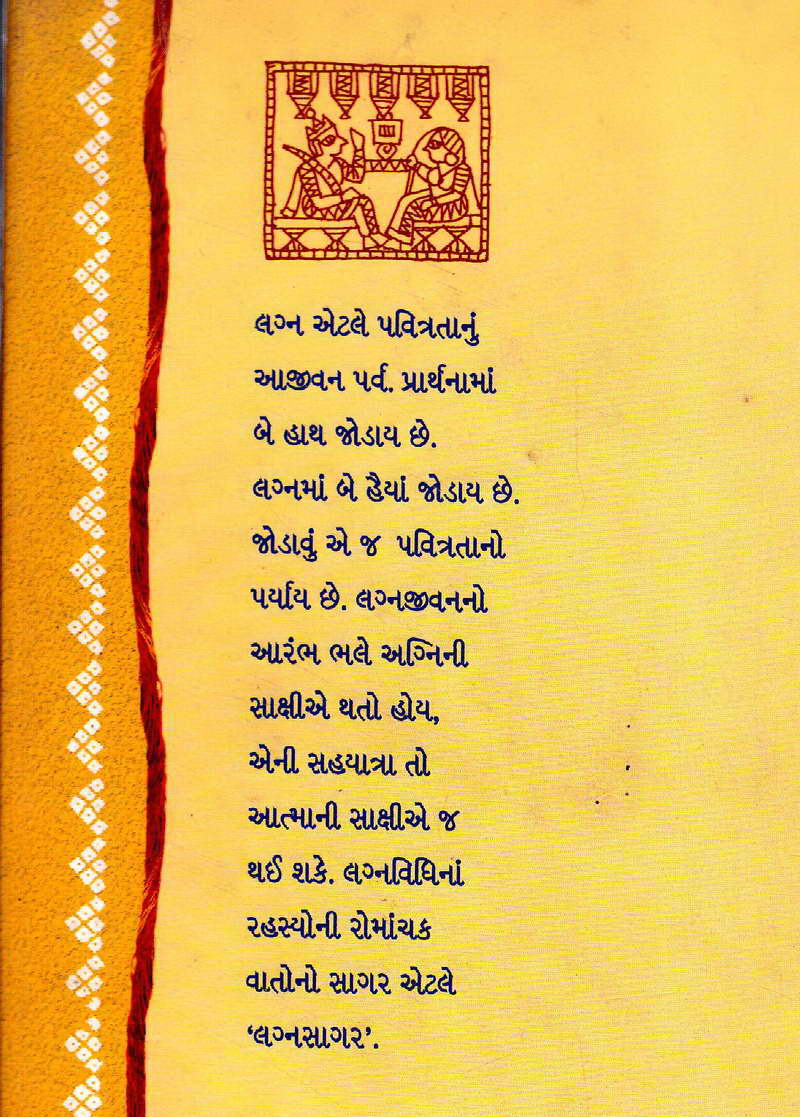 લગ્ન એટલે પવિત્રતાનું
આજીવન પર્વ. પ્રાર્થનામાં
બે હાથ જોડાય છે.
લગ્નમાં બે હૈયાં જોડાય છે.
જોડાવું એ જ પવિત્રતાનો
પર્યાય છે. લગ્નજીવનનો
આરંભ ભલે અગ્નિની
સાક્ષીએ થતો હોય,
એની સહયાત્રા તો
આત્માની સાક્ષીએ જ
થઈ શકે. લગ્નવિધિનાં
રહસ્યોની રોમાંચક
વાતોનો સાગર એટલે
‘લગ્નસાગર’.